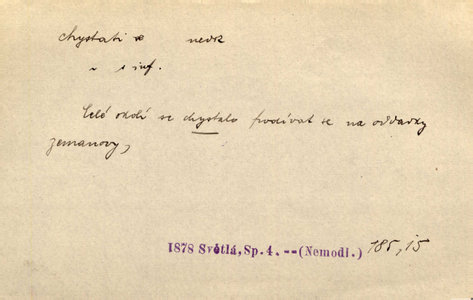 chystati se nedk
" s inf.
Celé okolí se chystalo podívat se na oddavky
zemanovy,
1878 Světlá, Sp. 4. -- (Nemodl.) 185,15